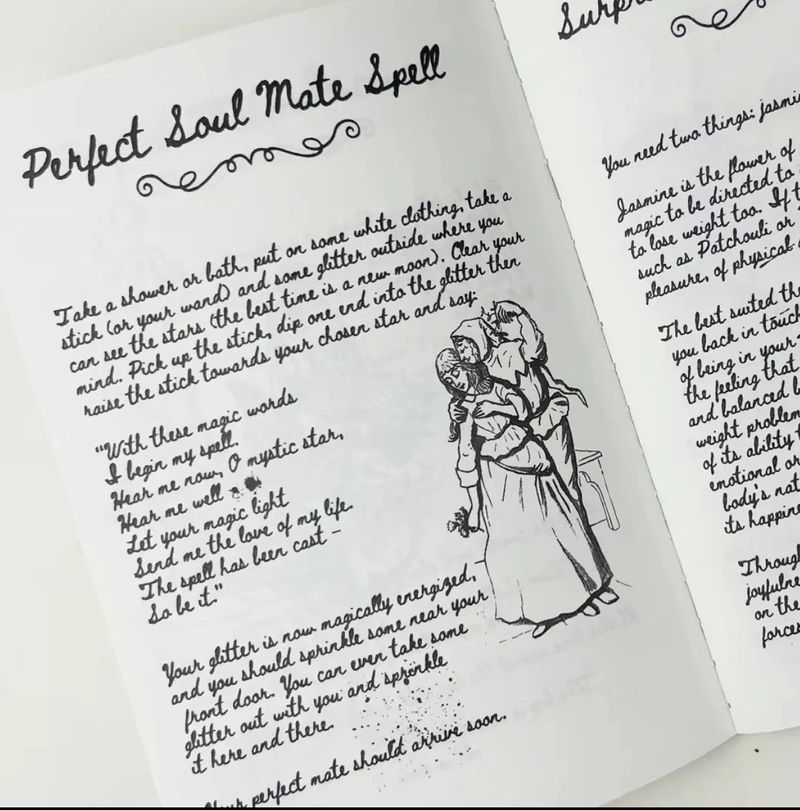 Perfect Soul Mate Spell
Take a shower or bath, put on some white clothing, take a
stick (or your wand) and some glitter outside where you
can see the stars (the best time is a new moon). Clear your
mind. Pick up the stick, dip one end into the glitter then
raise the stick towards your chosen star and say:
"With these magic words
I begin my spell.
Hear me now, O mystic star,
Hear me well -
Let your magic light
Send me the love of my life.
The spell has been cast -
So be it."
Your glitter is now magically energized,
and you should sprinkle some near your
front door. You can even take some
glitter out with you and sprinkle
it here and there.
Your perfect mate should arrive soon.
You need two things: jasmi
Jasmine is the flower of
magic to be directed to
to lose weight too. If t
such as Patchouli or
pleasure, of physical
The best suited the
you back in touch
of being in your
the feeling that
and balanced b
weight problem
of its ability t
emotional or
body's nat
its happine
Throug
joyfulne
on the
forces